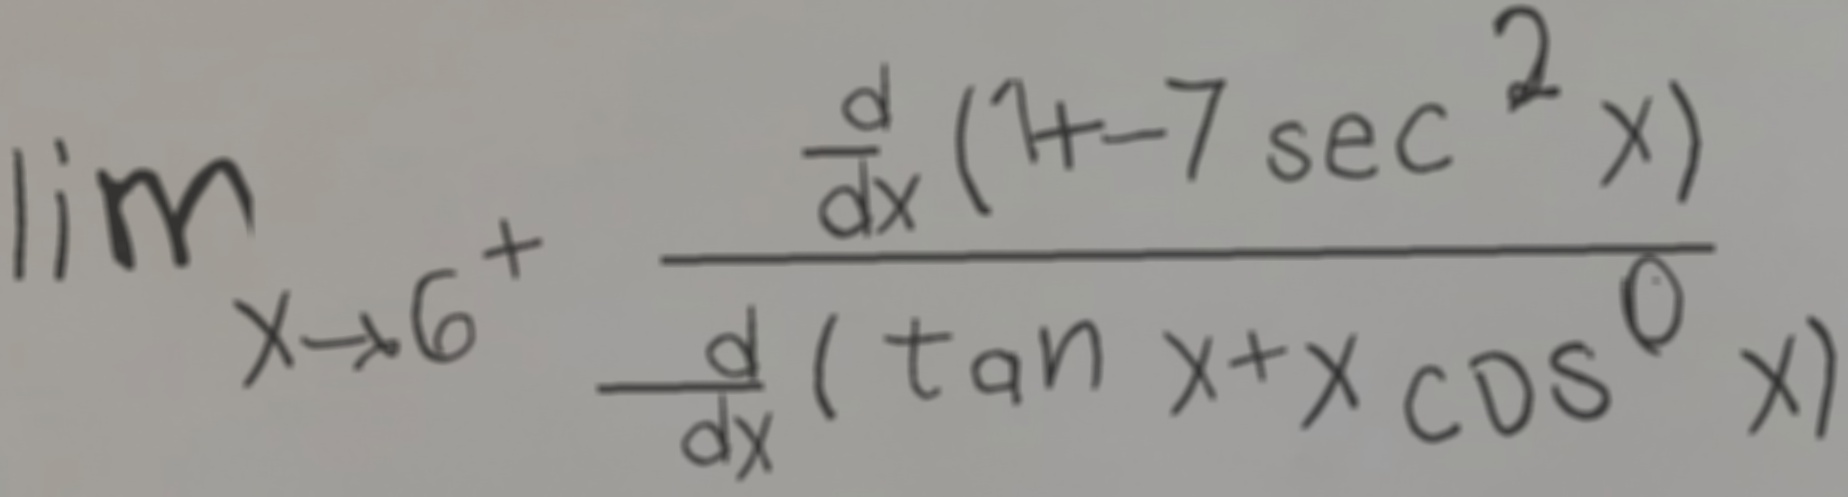 lim x→6⁺ \frac{\frac{d}{dx}(1+-7 sec² x)}{\frac{d}{dx}(tan x+x cos⁰ x)}